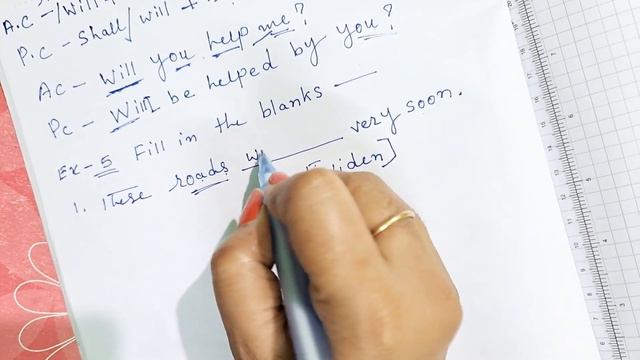 A.C - / Will
P.C - Shall / will +
AC - Will you help me?
PC - Will I be helped by you?
Ex-5 Fill in the blanks
1. These roads wi very soon.
widen]